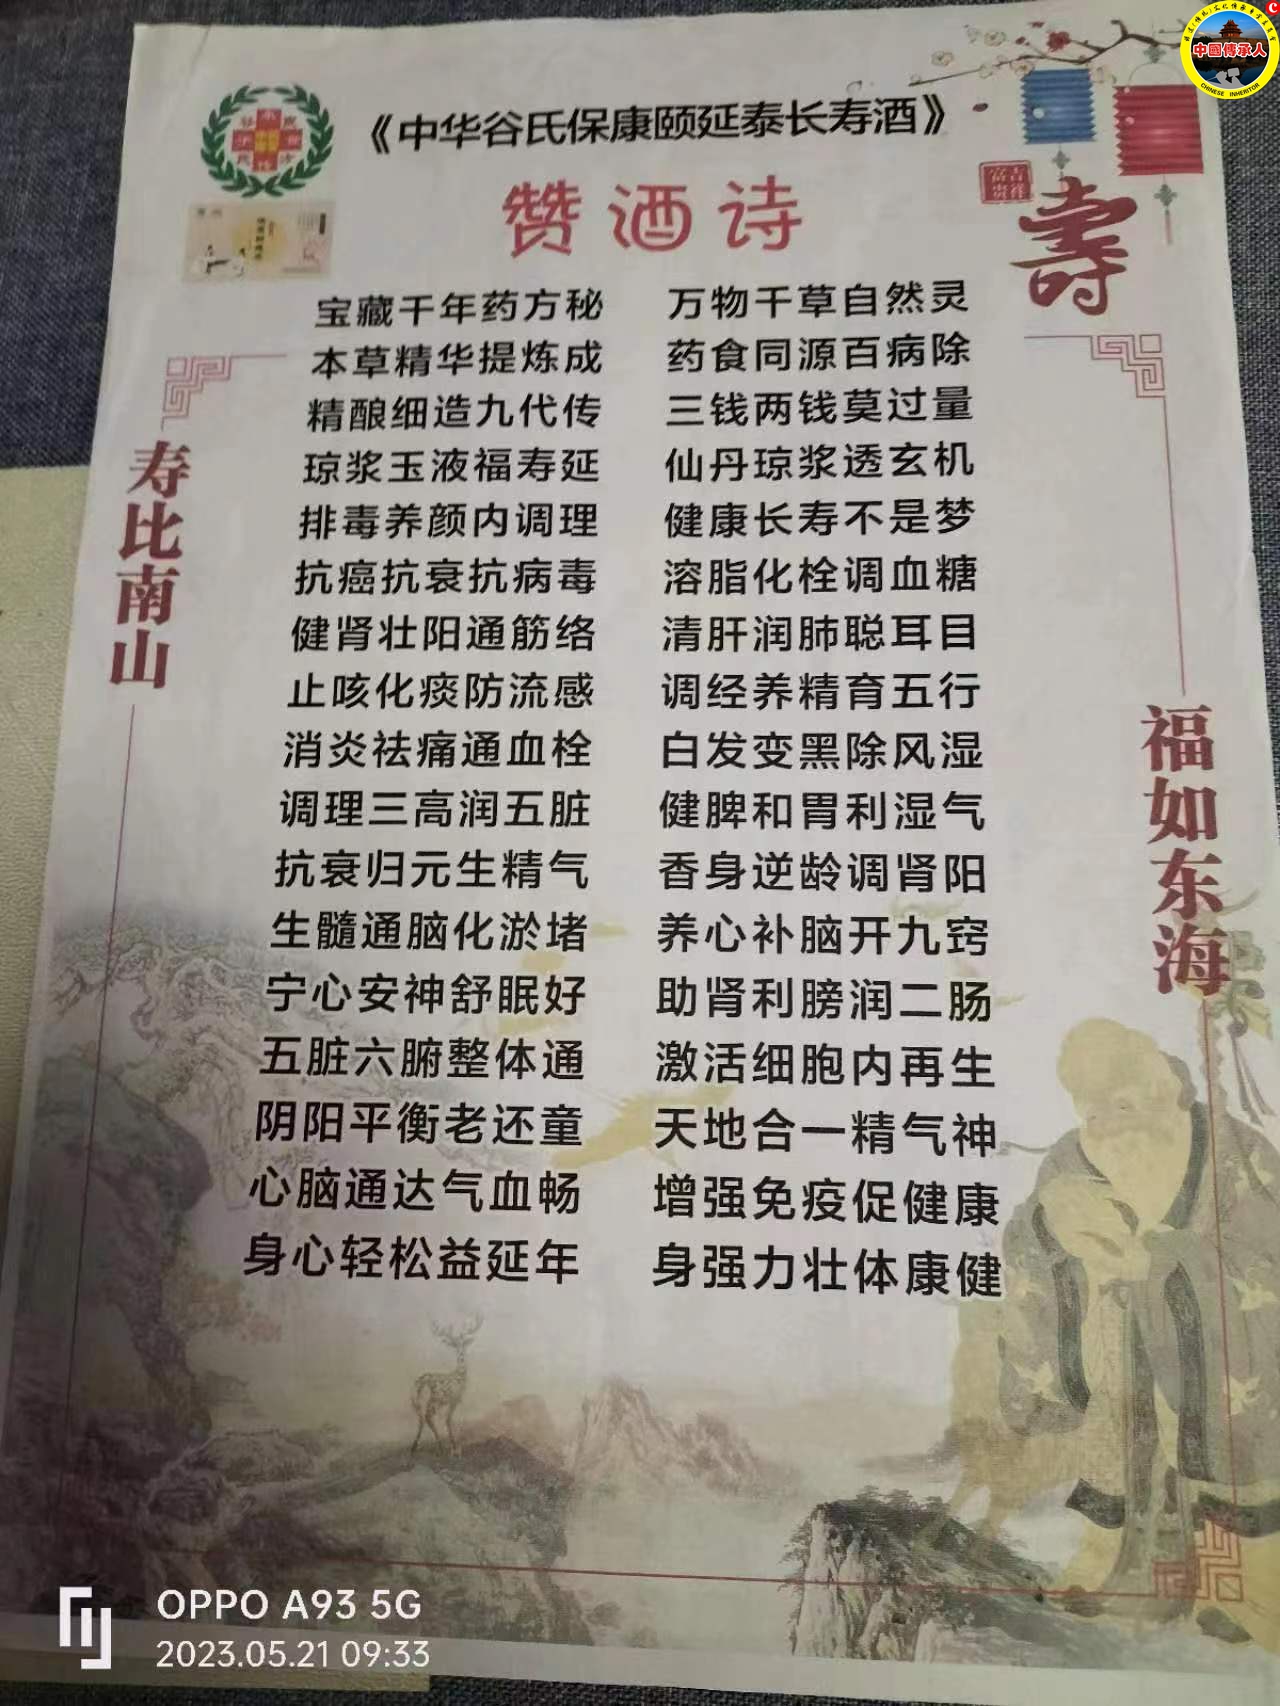 中國傳承人
CHINESE INHERITOR
《中华谷氏保康颐延泰长寿酒》
赞酒诗
富吉
贵祥
壽
宝藏千年药方秘 万物千草自然灵
本草精华提炼成 药食同源百病除
精酿细造九代传 三钱两钱莫过量
琼浆玉液福寿延 仙丹琼浆透玄机
排毒养颜内调理 健康长寿不是梦
抗癌抗衰抗病毒 溶脂化栓调血糖
健肾壮阳通筋络 清肝润肺聪耳目
止咳化痰防流感 调经养精育五行
消炎祛痛通血栓 白发变黑除风湿
调理三高润五脏 健脾和胃利湿气
抗衰归元生精气 香身逆龄调肾阳
生髓通脑化淤堵 养心补脑开九窍
宁心安神舒眠好 助肾利膀润二肠
五脏六腑整体通 激活细胞内再生
阴阳平衡老还童 天地合一精气神
心脑通达气血畅 增强免疫促健康
身心轻松益延年 身强力壮体康健
寿比南山
福如东海
OPPO A93 5G
2023.05.21 09:33